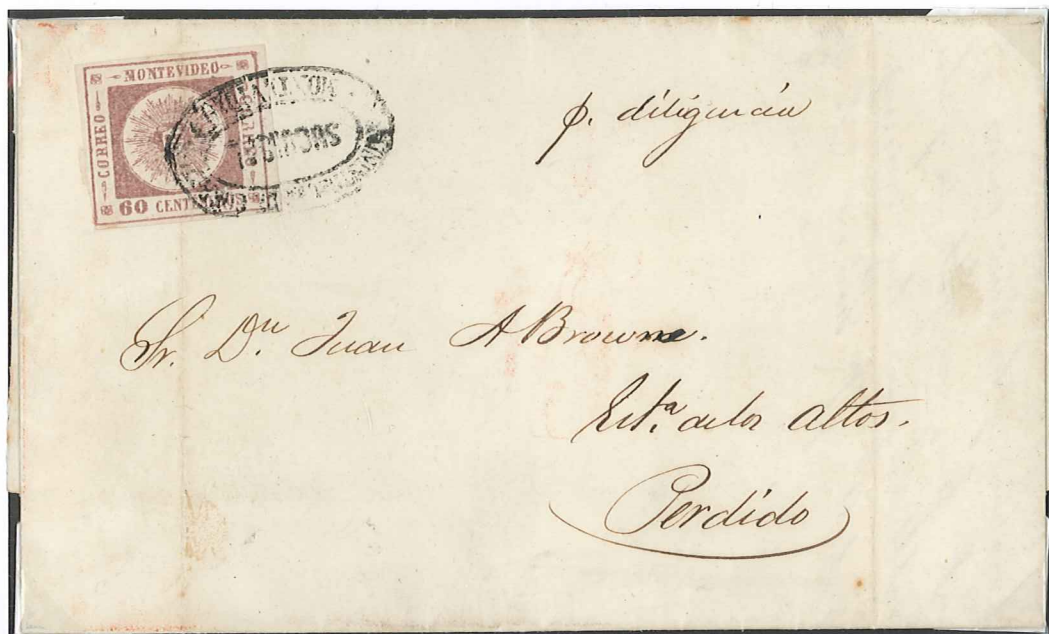 MONTEVIDEO
CORREO
60 CENTECIMOS
MONTEVIDEO
p. diligencia
Sr. Dn. Juan A Browne.
Esta. de los Altos.
Perdido